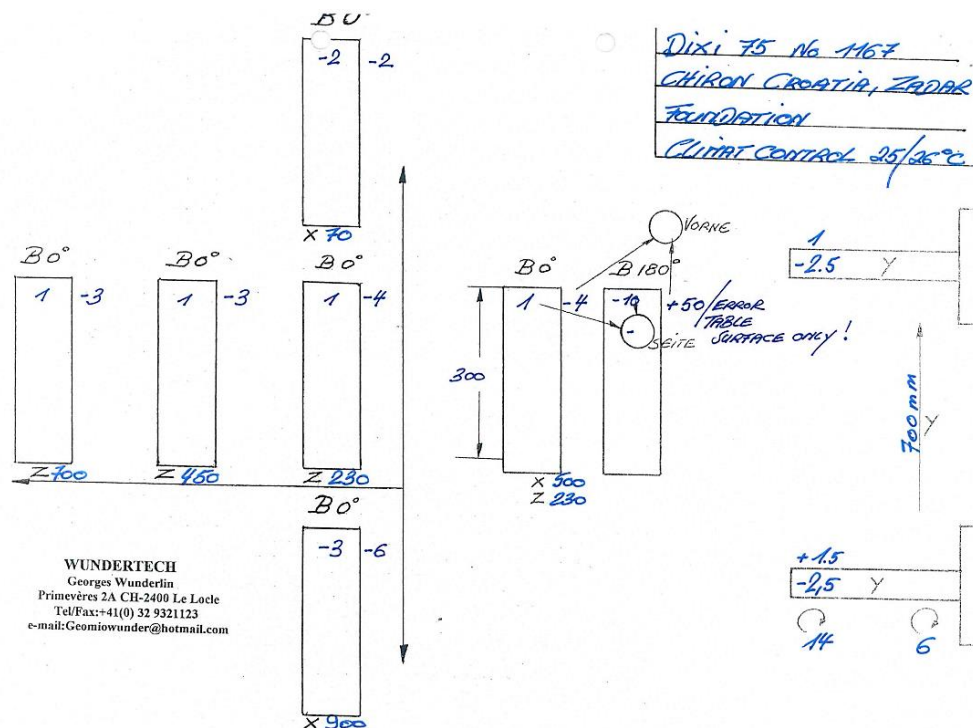 B 0°
-2 -2
X 70
DIXI 75 No 1167
CHIRON CROATIA, ZADAR
FOUNDATION
CLIMAT CONTROL 25/26°C
B 0°
1 -3
Z 700
B 0°
1 -3
Z 450
B 0°
1 -4
Z 230
B 0°
1 -4
300
X 500
Z 230
VORNE
B 180°
-10 +50/ERROR
TABLE
SURFACE ONLY!
-
SEITE
1
-2.5 Y
700 mm
Y
+1.5
-2,5 Y
14 6
B 0°
-3 -6
X 900
WUNDERTECH
Georges Wunderlin
Primevères 2A CH-2400 Le Locle
Tel/Fax:+41(0) 32 9321123
e-mail:Geomiowunder@hotmail.com